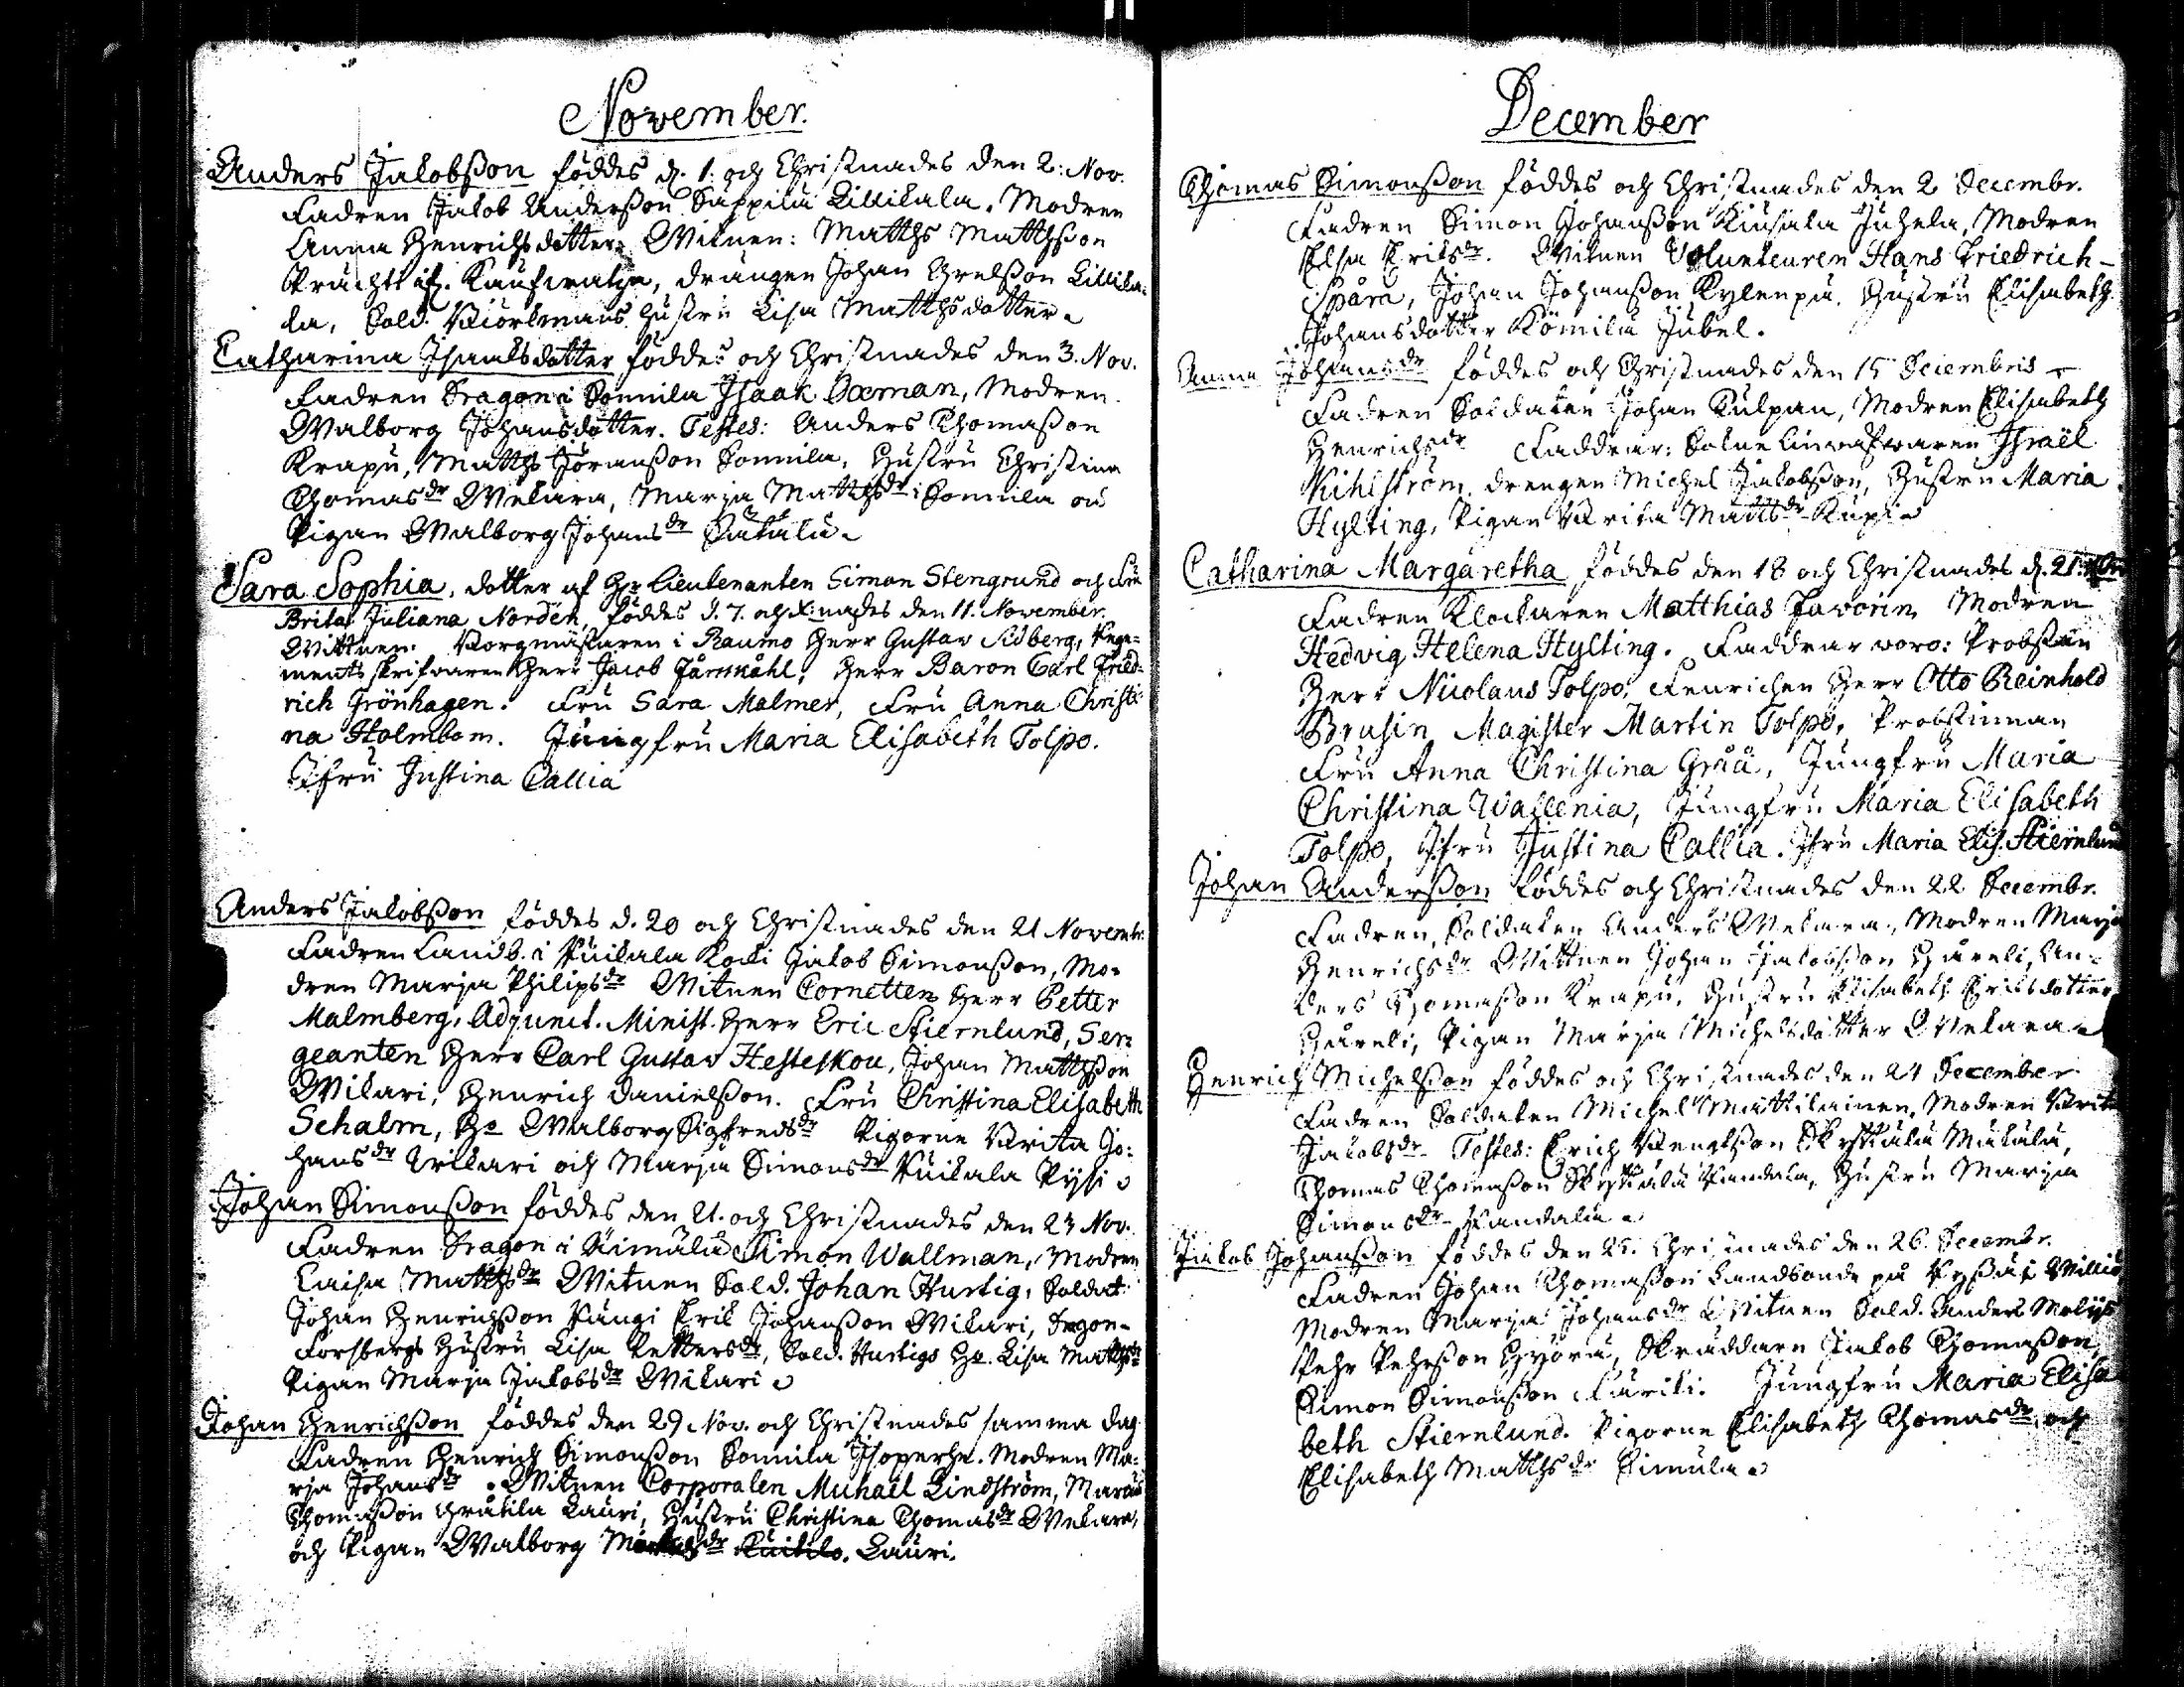 November.
Anders Jakobsson föddes d. 1. och Christnades den 2. Nov.
Fadren Jakob Andersson Sappilu Lillikala. Modren
Anna Henrichsdotter. Witnen: Matths Matthsson
Kaufwatza, drängen Johan Lillika-
la, Sold. Biörkmans Hustru Lisa Matthsdotter.
Catharina Isaaksdotter föddes och Christnades den 3. Nov.
Fadren Dragon i Sonnila Isaak Boxman, Modren
Walborg Johansdotter. Testes: Anders Thomasson
Krapu, Matths Jöransson Sonnila, Hustru Christina
Thomasdr Wekara, Marja Matthsdr i Sonnila och
Pigan Walborg Johansdr
Sara Sophia, dotter af Hr Lieutenanten Simon Stengrund och Fru
Brita Juliana Nordén, föddes d. 7. och X:nades den 11. November.
Wittnen: Borgmästaren i Raumo Herr Gustav Sidberg, Rege-
ments skrifwaren Herr Jacob Järnkåhl, Herr Baron Carl Fried-
rich Grönhagen. Fru Sara Malmer, Fru Anna Christi-
na Holmbom. Jungfru Maria Elisabeth Tolpo.
Jfru Justina Callia
Anders Jakobsson föddes d. 20 och Christnades den 21 Novembr.
Fadren Landb. i Puikala Koski Jakob Simonsson, Mo-
dren Marja Philipsdr Witnen Cornetten Herr Petter
Malmberg, Adjunct. Minist. Herr Eric Stiernlund, Ser-
geanten Herr Carl Gustav Hesteskou, Johan Matthsson
Wikari, Henrich Danielsson. Fru Christina Elisabeth
Schalm, Ho Walborg Sigfredsdr Pigorne Brita Jo-
hansdr och Marja Simonsdr Puikala Pysi
Johan Simonsson föddes den 21. och Christnades den 23 Nov.
Fadren Dragon i Simon Wallman, Modren
Caisa Matthsdr Witnen Sold. Johan Hurtig, Soldat
Johan Henrichsson Pungi Erik Johansson Wikari, Dragon
Forsbergs Hustru Lisa Pettersdr, Sold. Hurtigs Ho. Lisa Matthsdr
Pigan Marja Jakobsdr Wikari
Johan Henrichsson föddes den 29 Nov. och Christnades samma dag
Fadren Henrich Simonsson Sonnila Isoperhe. Modren Ma-
rja Johansdr. Witnen Corporalen Michaël Lindström, Marcus
Thomasson Lauri, Hustru Christina Thomasdr Wekara,
och Pigan Walborg Lauri.
December
Thomas Simonsson föddes och Christnades den 2 Decembr.
Fadren Simon Johansson Kiusala Juhela, Modren
Elsa Eriksdr. Witnen Volunteuren Hans Friedrich
Spåra, Johan Johansson Kylenpä. Hustru Elisabeth
Johansdotter Kömilä Jubel.
Anna Johansdr föddes och Christnades den 15 Decembris
Fadren Soldaten Johan Kulpan, Modren Elisabeth
Henrichsdr Faddrar: Israël
Kihlström, drengen Michel Jakobsson, Hustru Maria
Hylting, Pigan Brita Mattsdr
Catharina Margaretha föddes den 18 och Christnades d. 21.
Fadren Klockaren Matthias Favorin Modren
Hedvig Helena Hylting. Faddrar woro: Probsten
Herr Nicolaus Tolpo, Fenrichen Herr Otto Reinhold
Brusin Magister Martin Tolpo, Probstinnan
Fru Anna Christina Gråå, Jungfru Maria
Christina Wallenia, Jungfru Maria Elisabeth
Tolpo, Jfru Justina Callia. Jfru Maria Elis. Stiernlund
Johan Andersson föddes och Christnades den 22 Decembr.
Fadren, Soldaten Anders Wekara, Modren Marja
Henrichsdr Wittnen Johan Jakobsson Hureli, An-
ders Thomasson Krapu, Hustru Elisabeth Eriksdotter
Hureli, Pigan Marja Michelsdotter Wekara
Henrich Michelsson föddes och Christnades den 24 December
Fadren Soldaten Michel Mattilainen, Modren Brita
Jakobsdr Testes: Erich Bengtsson Skyttälä Mukula,
Thomas Thomasson Skyttälä Pandala, Hustru Marja
Simonsdr Pandala
Jakob Johansson föddes den 25. Christnades den 26 Decembr.
Fadren Johan Thomasson Landbonde på
Modren Marja Johansdr Witnen Sold. Anders
Pehr Pehrsson Hyöru, Skräddaren Jakob Thomasson,
Simon Simonsson Jungfru Maria Elisa
beth Stiernlund. Pigorne Elisabeth Thomasdr och
Elisabeth Matthsdr Simula